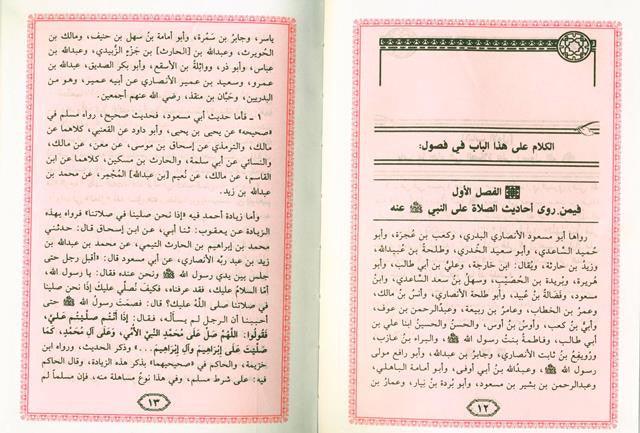 الكلام على هذا الباب في فصول:
الفصل الأول
فيمن روى أحاديث الصلاة على النبي ﷺ عنه
رواها أبو مسعود الأنصاري البدري، وكعب بن عُجرة، وأبو
حُميد الساعدي، وأبو سعيد الخُدري، وطلحة بن عُبيدالله،
وزيدُ بن حارثة، ويُقال: ابن خارجة، وعليُّ بن أبي طالب، وأبو
هريرة، وبُريدة بن الحُصَيْب، وسهلُ بنُ سعد الساعدي، وابن
مسعود، وفَضَالةُ بنُ عُبيد، وأبو طلحة الأنصاري، وأنسُ بن مالك،
وعمرُ بن الخطاب، وعامرُ بن ربيعة، وعبدالرحمن بن عوف،
وأُبيُّ بنُ كعب، وأوسُ بنُ أوس، والحسنُ والحسينُ ابنا علي بن
أبي طالب، وفاطمةُ بنتُ رسول الله ﷺ، والبراء بنُ عازب،
ورُويفِعُ بنُ ثابت الأنصاري، وجابرُ بن عبدالله، وأبو رافع مولى
رسول الله ﷺ، وعبدُالله بنُ أبي أوفى، وأبو أمامة الباهلي،
وعبدالرحمن بن بشير بن مسعود، وأبو بُردة بن نِيار، وعمارُ بن
١٢
ياسر، وجابرُ بن سَمُرة، وأبو أمامة بنُ سهل بن حنيف، ومالك بن
الحُويرث، وعبدالله بن [الحارث] بن جَزْء الزُّبيدي، وعبدالله بن
عباس، وأبو ذر، وواثلةُ بن الأسقع، وأبو بكر الصديق، وعبدالله بن
عمرو، وسعيد بن عمير الأنصاري عن أبيه عمير، وهو من
البدريين، وحَبَّان بن منقذ، رضي الله عنهم أجمعين.
١ ـ فأما حديث أبي مسعود، فحديث صحيح، رواه مسلم في
«صحيحه» عن يحيى بن يحيى، وأبو داود عن القعنبي، كلاهما عن
مالك، والترمذي عن إسحاق بن موسى، عن معن، عن مالك،
والنسائي عن أبي سلمة، والحارث بن مسكين، كلاهما عن ابن
القاسم، عن مالك، عن نُعيم [بن عبدالله] المُجْمِر، عن محمد بن
عبدالله بن زيد.
وأما زيادة أحمد فيه «إذا نحن صلينا في صلاتنا» فرواه بهذه
الزيادة عن يعقوب: ثنا أبي، عن ابن إسحاق قال: حدثني
محمد بن إبراهيم بن الحارث التيمي، عن محمد بن عبدالله بن
زيد بن عبد ربّه الأنصاري، عن أبي مسعود قال: «أقبل رجل حتى
جلس بين يدي رسول الله ﷺ ونحن عنده فقال: يا رسول الله،
أمّا السلامُ عليك، فقد عرفناه، فكيف نُصلّي عليك إذا نحن صلينا
في صلاتنا صلى اللّهُ عليك؟ قال: فصمَتَ رسولُ الله ﷺ حتى
أحببنا أن الرجل لم يسأله، فقال: إِذَا أَنْتُم صَلَّيْتُم عَلَيَّ،
فَقُولُوا: اللَّهُمَّ صَلِّ عَلَى مُحَمَّدٍ النَّبِيِّ الأُمِّي، وَعَلَى آلِ مُحَمَّدٍ، كَمَا
صَلَّيْتَ عَلَى إبْرَاهِيمَ وَآلِ إِبْرَاهِيمَ...» وذكر الحديث، ورواه ابن
خزيمة، والحاكم في «صحيحيهما» بذكر هذه الزيادة، وقال الحاكم
فيه: على شرط مسلم، وفي هذا نوعُ مساهلة منه، فإن مسلماً لم
١٣